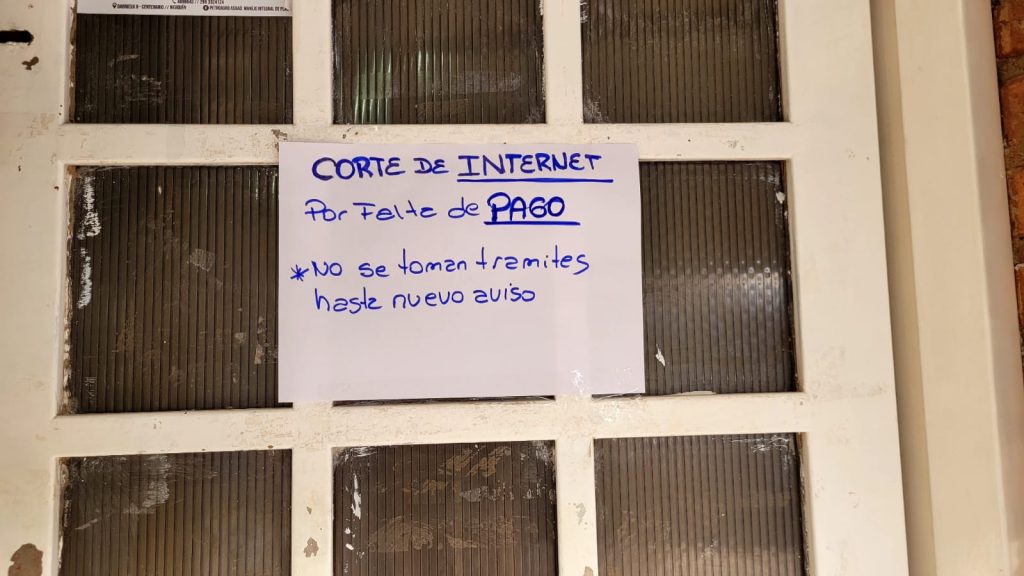 9 - CENTENARIO / NEUQUÉN
CORTE DE INTERNET
Por Falta de PAGO
*No se toman tramites
hasta nuevo aviso